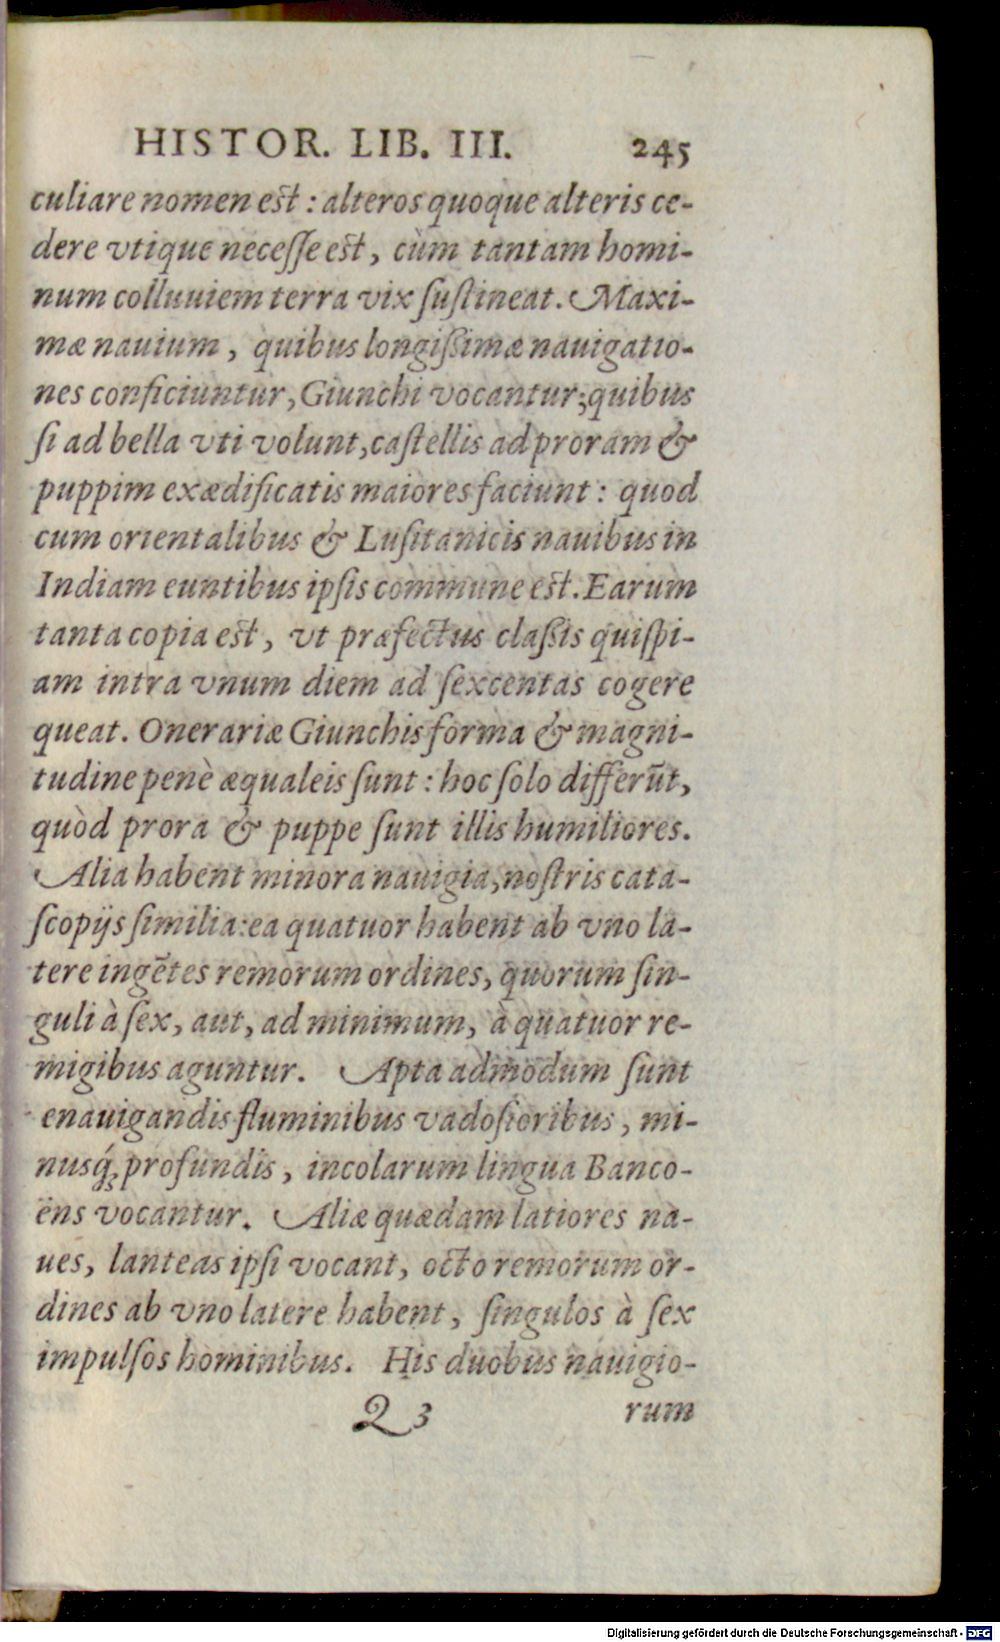 HISTOR. LIB. III. 245
culiare nomen est : alteros quoque alteris ce-
dere vtique necesſe est, cùm tantam homi-
num colluuiem terra vix ſuſtineat. Maxi-
mæ nauium, quibus longiſsimæ nauigatio-
nes conficiuntur, Giunchi vocantur; quibus
ſi ad bella vti volunt, caſtellis ad proram &
puppim exædificatis maiores faciunt : quod
cum orientalibus & Luſitanicis nauibus in
Indiam euntibus ipſis commune est. Earum
tanta copia est, vt præfectus claſsis quiſpi-
am intra vnum diem ad ſexcentas cogere
queat. Onerariæ Giunchis forma & magni-
tudine penè æqualeis ſunt : hoc ſolo differūt,
quòd prora & puppe ſunt illis humiliores.
Alia habent minora nauigia, noſtris cata-
ſcopijs ſimilia: ea quatuor habent ab vno la-
tere ingētes remorum ordines, quorum ſin-
guli à ſex, aut, ad minimum, à quatuor re-
migibus aguntur. Apta admodum ſunt
enauigandis fluminibus vadoſioribus, mi-
nusq́; profundis, incolarum lingua Banco-
ëns vocantur. Aliæ quædam latiores na-
ues, lanteas ipſi vocant, octo remorum or-
dines ab vno latere habent, ſingulos à ſex
impulſos hominibus. His duobus nauigio-
Q 3 rum
Digitalisierung gefördert durch die Deutsche Forschungsgemeinschaft - DFG